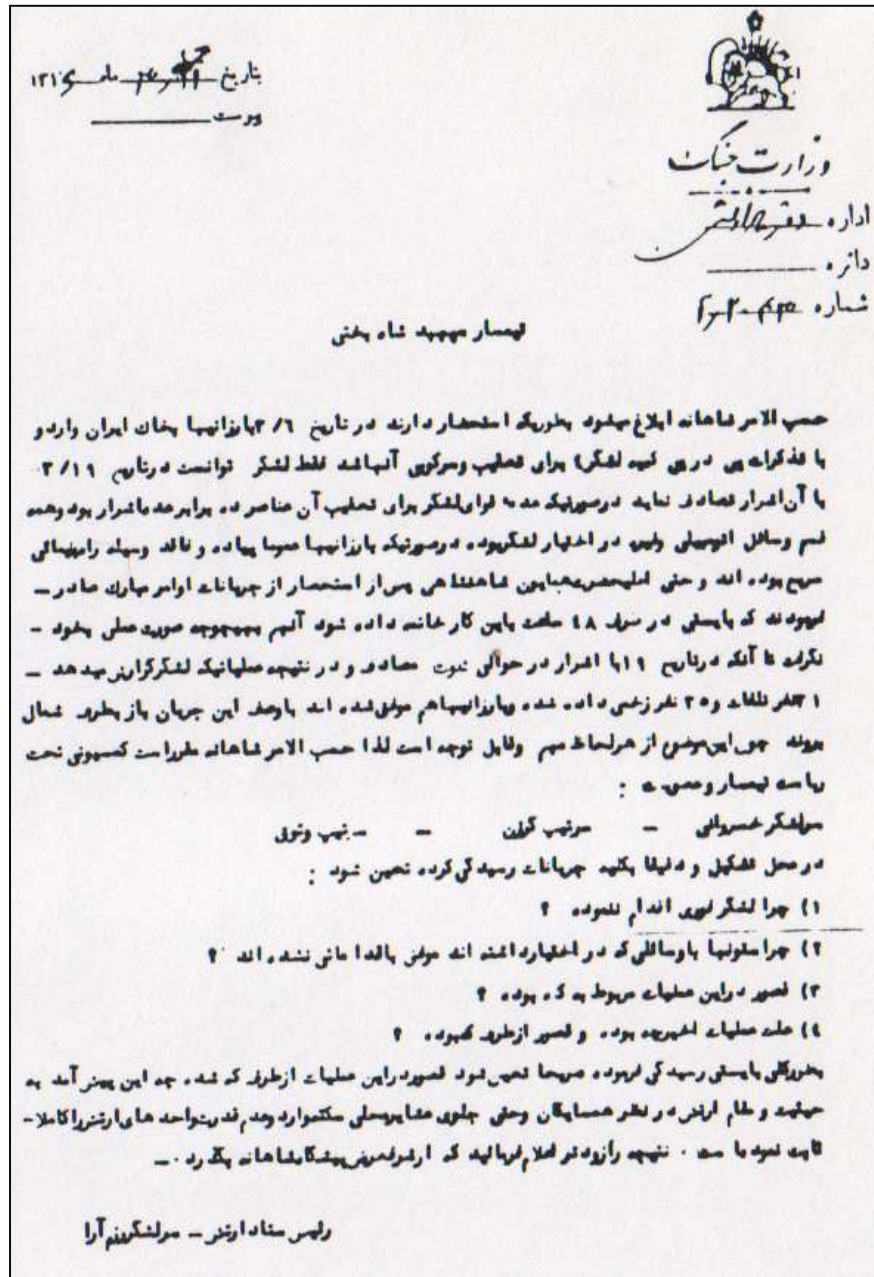 بتاریخ ماه ۱۳۱
پیوست
وزارت جنگ
اداره
دائره
شماره
تیمسار سپهبد شاه بختی
حسب الامر شاهانه ابلاغ میشود بطوریکه استحضار دارند در تاریخ ۳/۶ بارزانیها بخاک ایران وارد و
با تذکرات پی در پی کلیه لشگر برای تعقیب وسرکوبی آنها شد فقط لشگر ۴ توانست در تاریخ ۳/۱۹
با آن اشرار تصادف نماید در صورتیکه عده قوای لشگر برای تعقیب آن عناصر ده برابر عده اشرار بود وهمه
قسم وسائل اتومبیلی وغیره در اختیار لشگر بوده در صورتیکه بارزانیها عموما پیاده و فاقد وسیله راهپیمائی
سریع بوده اند و حتی اعلیحضرت همایون شاهنشاهی پس از استحضار از جریانات اوامر مبارک صادر –
فرمودند که بایستی در ظرف ۴۸ ساعت باین کار خاتمه داده شود آنهم بهیچوجه صورت عملی بخود –
نگرفت تا آنکه در تاریخ ۱۹ با اشرار در حوالی مصادف و در نتیجه عملیاتیکه لشگر گزارش میدهد –
نفر تلفات و ۲۵ نفر زخمی داده شده وبارزانیها هم موفق شده اند باوصف این جریان باز بطرف شمال
بروند چون این موضوع از هر لحاظ مهم وقابل توجه است لذا حسب الامر شاهانه مقرر است کمسیونی تحت
ریاست تیمسار وعضویت :
سرلشگر خسروانی – سرتیپ – سرتیپ وثوق
در محل تشکیل و دقیقا بکلیه جریانات رسیدگی کرده تعیین شود :
۱) چرا لشگر فوری اقدام ننموده ؟
۲) چرا ستونها با وسائلی که در اختیار داشته اند موفق باقداماتی نشده اند ؟
۳) قصور در این عملیات مربوط به که بوده ؟
۴) علت عملیات اخیر چه بوده و قصور از طرف که بوده ؟
بطور کلی بایستی رسیدگی فرموده صریحا تعیین شود قصور در این عملیات از طرف که شده چه این پیش آمد به
حیثیت و مقام ارتش در نظر همسایگان وحتی جلوی عشایر محلی سکته وارد وعدم قدرت واحد های ارتش را کاملا –
ثابت نموده است . نتیجه را زودتر اعلام فرمائید که از شرفعرض پیشگاه شاهانه بگذرد . –
رئیس ستاد ارتش – سرلشگر رزم آرا